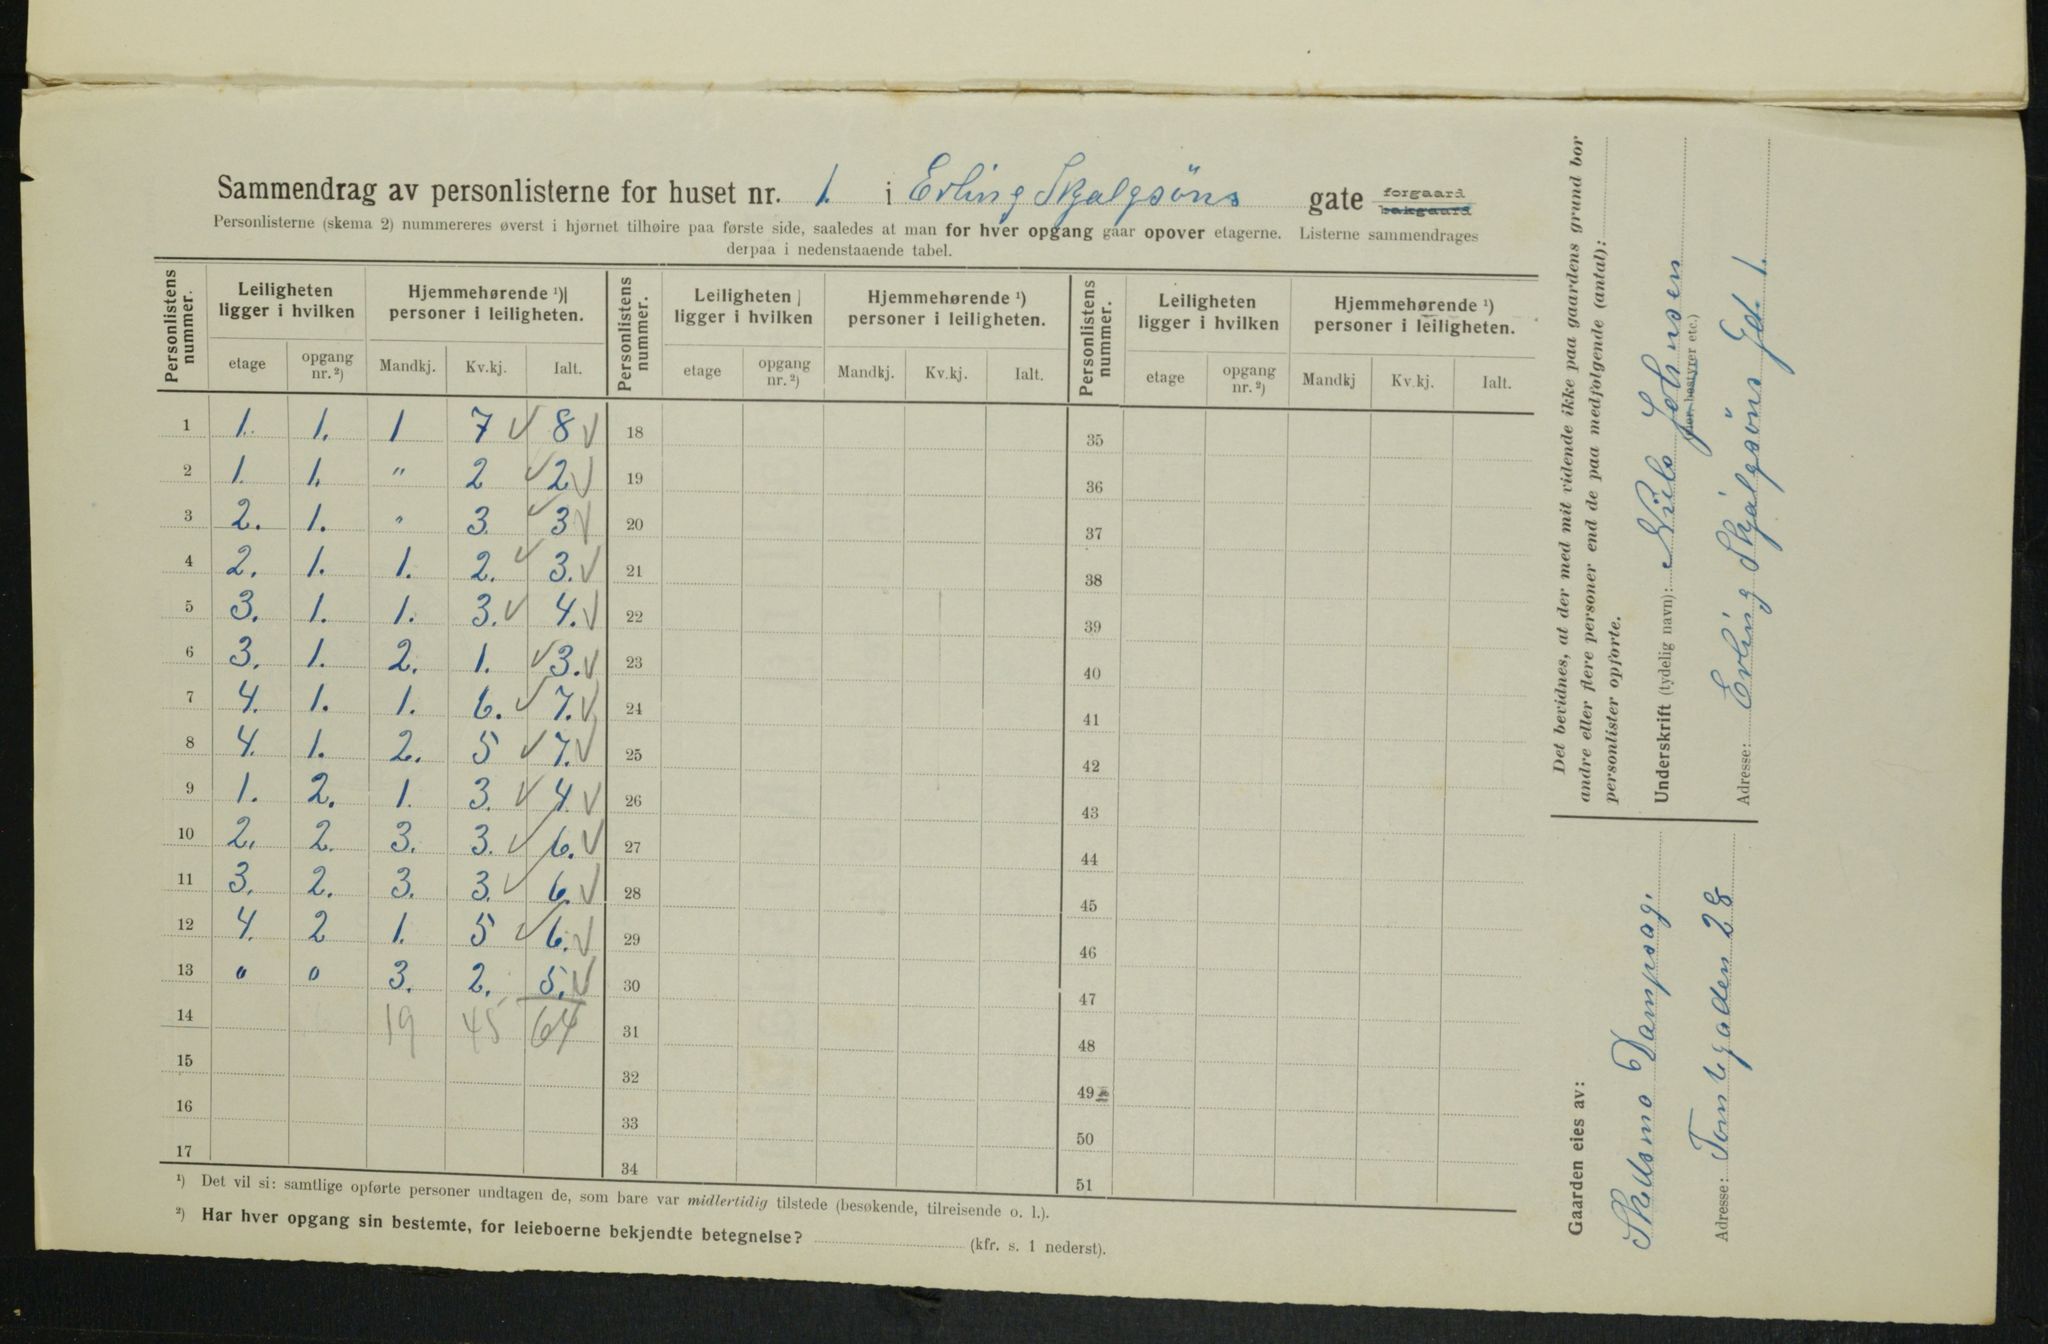 Sammendrag av personlisterne for huset nr. 1. i Erling Skjalgsöns gate forgaard bakgaard
Personlisterne (skema 2) nummereres øverst i hjørnet tilhøire paa første side, saaledes at man for hver opgang gaar opover etagerne. Listerne sammendrages
derpaa i nedenstaaende tabel.
Personlistens nummer. Leiligheten ligger i hvilken Hjemmehørende ¹) personer i leiligheten.
etage opgang nr. ²) Mandkj. Kv.kj. Ialt.
Personlistens nummer. Leiligheten ligger i hvilken Hjemmehørende ¹) personer i leiligheten.
etage opgang nr. ²) Mandkj. Kv.kj. Ialt.
Personlistens nummer. Leiligheten ligger i hvilken Hjemmehørende ¹) personer i leiligheten.
etage opgang nr. ²) Mandkj Kv.kj. Ialt.
1 1. 1. 1 7 ✓ 8 ✓ 18 35
2 1. 1. " 2 ✓ 2 ✓ 19 36
3 2. 1. " 3. ✓ 3 ✓ 20 37
4 2. 1. 1. 2. ✓ 3. ✓ 21 38
5 3. 1. 1. 3. ✓ 4. ✓ 22 39
6 3. 1. 2. 1. ✓ 3. ✓ 23 40
7 4. 1. 1. 6. ✓ 7. ✓ 24 41
8 4. 1. 2. 5 ✓ 7. ✓ 25 42
9 1. 2. 1. 3. ✓ 4. ✓ 26 43
10 2. 2. 3. 3. ✓ 6. ✓ 27 44
11 3. 2. 3. 3. ✓ 6. ✓ 28 45
12 4. 2 1. 5 ✓ 6. ✓ 29 46
13 0 0 3. 2. 5. ✓ 30 47
14 19 45 64 31 48
15 32 49
16 33 50
17 34 51
¹) Det vil si: samtlige opførte personer undtagen de, som bare var midlertidig tilstede (besøkende, tilreisende o. l.).
²) Har hver opgang sin bestemte, for leieboerne bekjendte betegnelse? (kfr. s. 1 nederst).
Det bevidnes, at der med mit vidende ikke paa gaardens grund bor
andre eller flere personer end de paa medfølgende (antal):
personlister opførte.
Underskrift (tydelig navn): Nils Johnsen
bestyrer etc.)
Adresse: Erling Skjalgsöns Gt. 1.
Gaarden eies av:
Dampsag.
Adresse: Tomtegaden 28